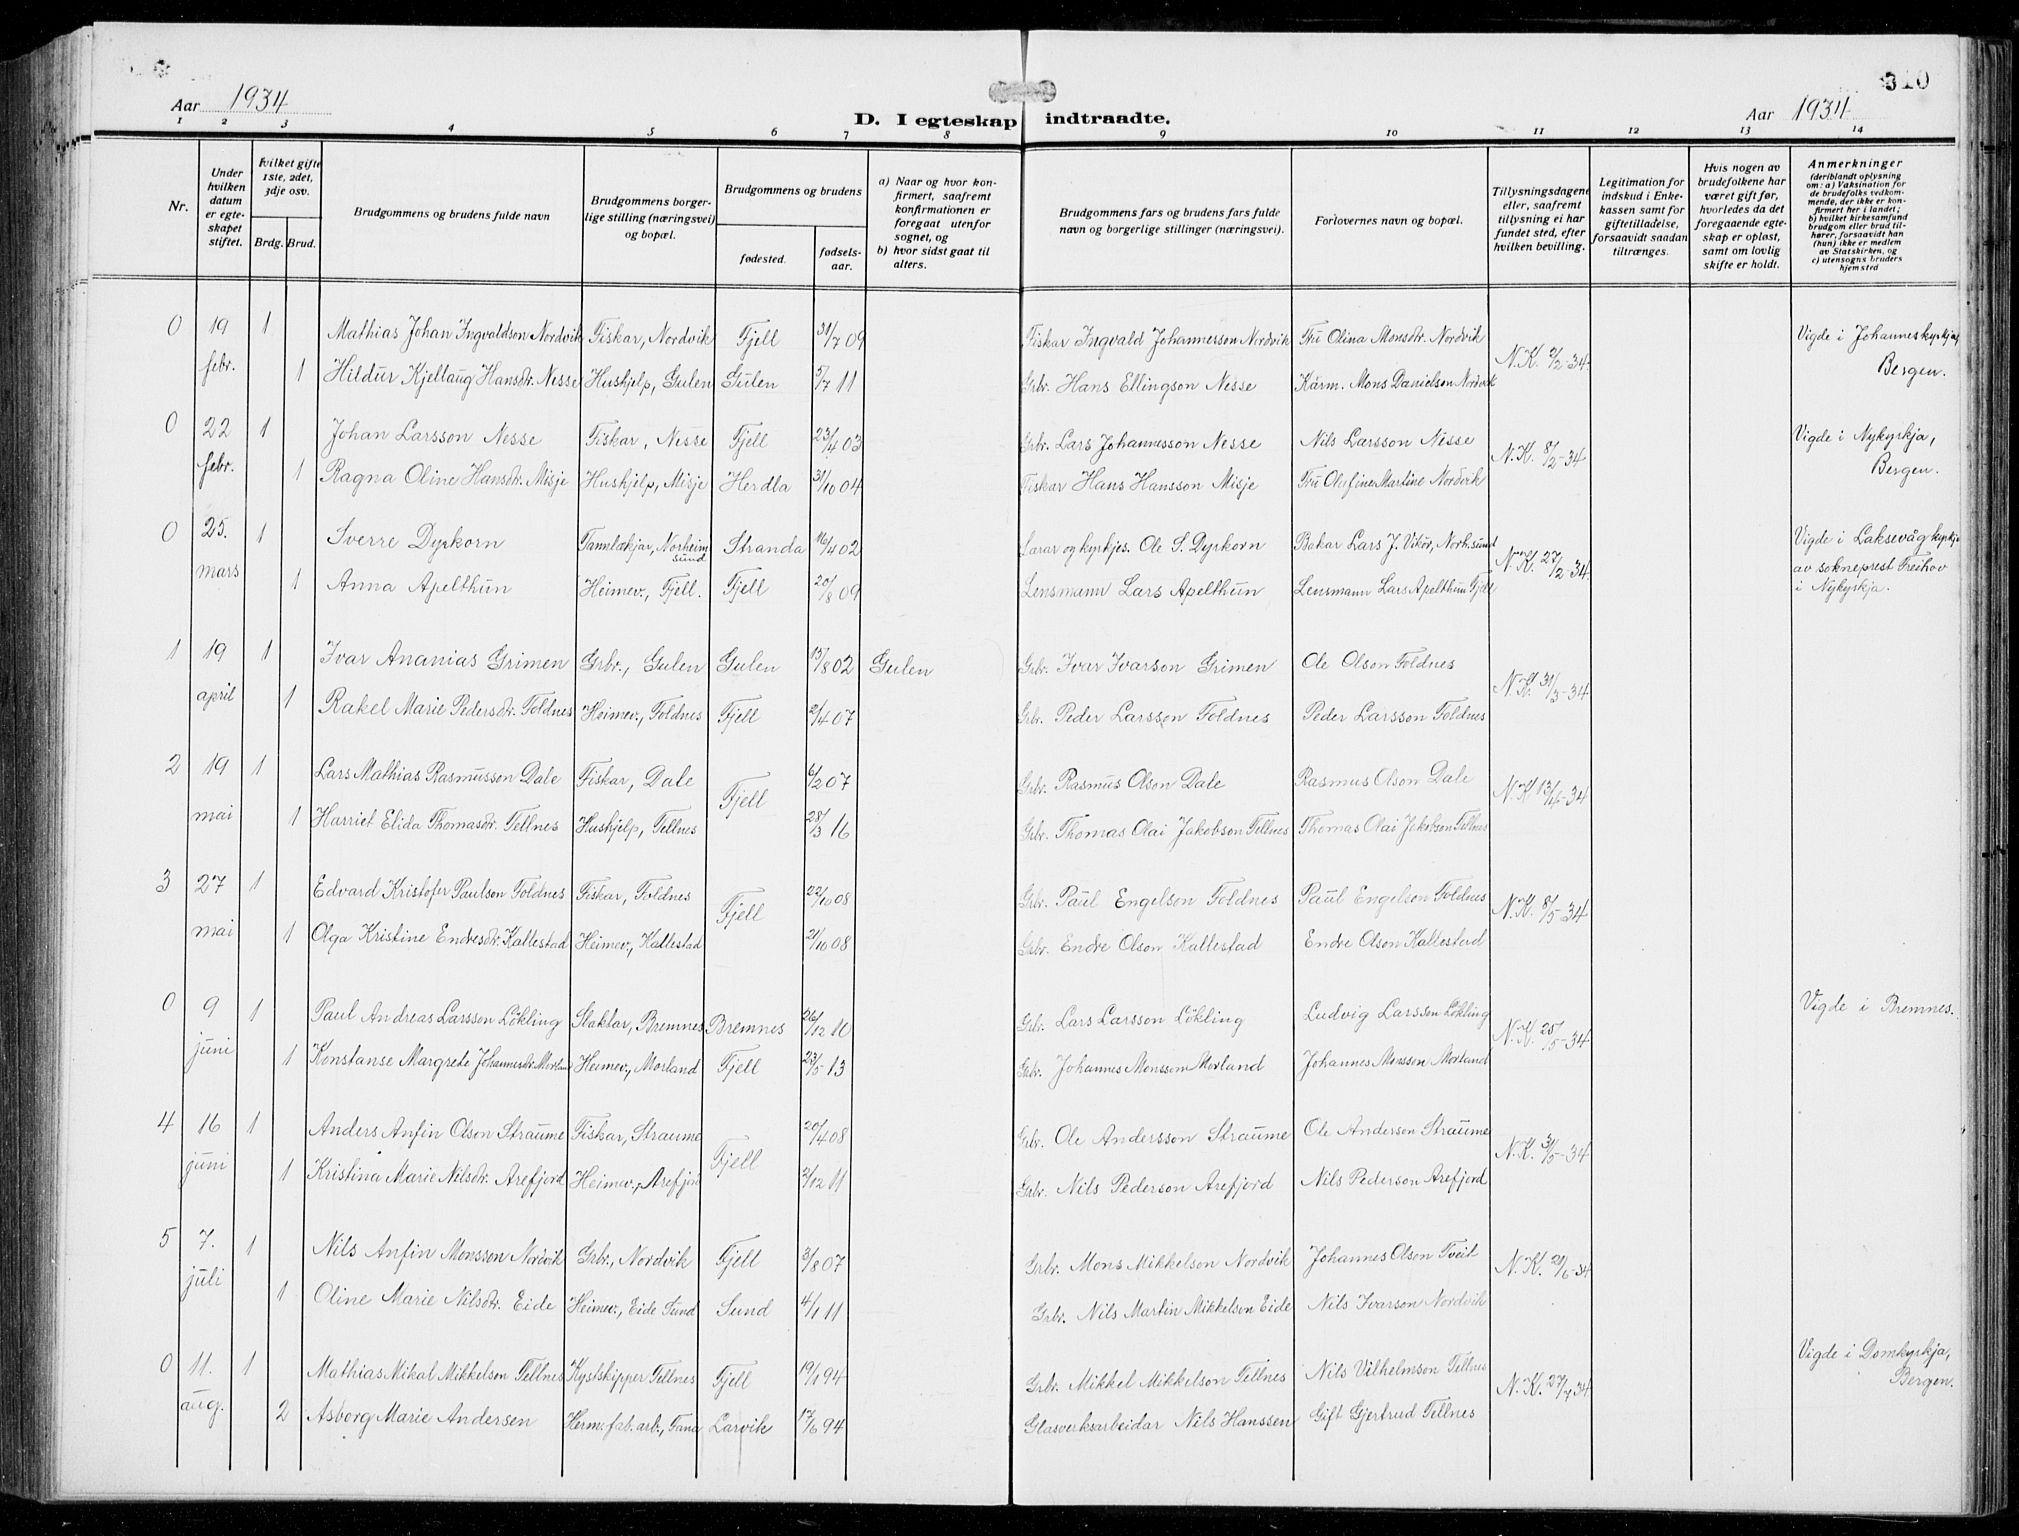 310
Aar 1934
D. I egteskap indtraadte.
Aar 1934
1 2 3 4 5 6 7 8 9 10 11 12 13 14
Nr.
Under hvilken datum er egteskapet stiftet.
Hvilket gifte 1ste, 2det, 3dje osv.
Brdg. Brud.
Brudgommens og brudens fulde navn
Brudgommens borgerlige stilling (næringsvei) og bopæl.
Brudgommens og brudens
fødested.
fødselsaar.
a) Naar og hvor konfirmert, saafremt konfirmationen er foregaat utenfor sognet, og
b) hvor sidst gaat til alters.
Brudgommens fars og brudens fars fulde navn og borgerlige stillinger (næringsvei).
Forlovernes navn og bopæl.
Tillysningsdagene eller, saafremt tillysning ei har fundet sted, efter hvilken bevilling.
Legitimation for indskud i Enkekassen samt for giftetilladelse, forsaavidt saadan tiltrænges.
Hvis nogen av brudefolkene har været gift før, hvorledes da det foregaaende egteskap er opløst, samt om lovlig skifte er holdt.
Anmerkninger (deriblandt oplysning om: a) Vaksination for de brudefolks vedkommende, der ikke er konfirmert her i landet; b) hvilket kirkesamfund brudgom eller brud tilhører, forsaavidt han (hun) ikke er medlem av Statskirken, og c) utensogns bruders hjemsted
0 19 febr. 1 Mathias Johan Ingvaldson Nordvik Fiskar, Nordvik Fjell 31/7 09 Fiskar Ingvald Johannesson Nordvik Fru Olina Monsdtr. Nordvik N.K. 2/2-34. Vigde i Johanneskyrkja, Bergen.
1 Hildur Kjellaug Hansdtr. Nesse Hushjelp, Gulen Gulen 5/7 11 Grbr. Hans Ellingson Nesse Kårm. Mons Danielson Nordvik
0 22 febr. 1 Johan Larsson Nesse Fiskar, Nesse Fjell 23/4 03 Grbr. Lars Johannesson Nesse Nils Larsson Nesse N.K. 8/2-34 Vigde i Nykyrkja, Bergen.
1 Ragna Oline Hansdtr. Misje Hushjelp, Misje Herdla 31/10 04 Fiskar Hans Hansson Misje Fru Olefine Martine Nordvik
0 25. mars 1 Sverre Dyrkorn Tannlækjar, Norheimsund Stranda 16/4 02 Lærar og kyrkjes. Ole S. Dyrkorn Bakar Lars J. Vikør, Norh.sund N.K. 27/2-34. Vigde i Laksevåg kyrkje av sokneprest Freihov i Nykyrkja.
1 Anna Apelthun Heimev., Fjell. Fjell 20/8 09 Lensmann Lars Apelthun Lensmann Lars Apelthun Fjell
1 19 april 1 Ivar Ananias Grimen Grbr., Gulen Gulen 15/8 02 Gulen Grbr. Ivar Ivarson Grimen Ole Olson Foldnes N.K. 31/3-34.
1 Rakel Marie Pedersdtr. Foldnes Heimev., Foldnes Fjell 2/4 07 Grbr. Peder Larsson Foldnes Peder Larsson Foldnes
2 19 mai 1 Lars Mathias Rasmusson Dale Fiskar, Dale Fjell 6/2 07 Grbr. Rasmus Olson Dale Rasmus Olson Dale N.K 13/4-34
1 Harriet Elida Thomasdtr. Tellnes Hushjelp, Tellnes 28/3 16 Grbr. Thomas Olai Jakobson Tellnes Thomas Olai Jakobson Tellnes
3 27 mai 1 Edvard Kristofer Paulson Foldnes Fiskar, Foldnes Fjell 22/10 08 Grbr. Paul Engelson Foldnes Paul Engelson Foldnes N.K. 8/5-34
1 Olga Kristine Endresdtr. Kallestad Heimev., Kallestad 21/10 08 Grbr. Endre Olson Kallestad Endre Olson Kallestad
0 9 juni 1 Paul Andreas Larsson Løkling Slaktar, Bremnes Bremnes 26/12 10 Grbr. Lars Larsson Løkling Ludvig Larsson Løkling N.K. 25/5-34 Vigde i Bremnes.
1 Konstanse Margrete Johannesdtr. Morland Heimev., Morland Fjell 23/5 13 Grbr. Johannes Monsson Morland Johannes Monsson Morland
4 16 juni 1 Anders Anfin Olson Straume Fiskar, Straume Fjell 20/4 08 Grbr. Ole Andersson Straume Ole Anderson Straume N.K. 31/5-34
1 Kristina Marie Nilsdtr. Arefjord Heimev., Arefjord 2/12 11 Grbr. Nils Pederson Arefjord Nils Pederson Arefjord
5 7. juli 1 Nils Anfin Monsson Nordvik Grbr., Nordvik Fjell 3/8 07 Grbr. Mons Mikkelson Nordvik Johannes Olson Tveit N.K. 21/6-34
1 Oline Marie Nilsdtr. Eide Heimev., Eide Sund Sund 4/1 11 Grbr. Nils Martin Mikkelson Eide Nils Ivarson Nordvik
0 11. aug. 1 Mathias Mikal Mikkelson Tellnes Kystskipper Tellnes Fjell 19/1 94 Grbr. Mikkel Mikkelson Tellnes Nils Vilhelmson Tellnes N.K. 27/7 34 Vigde i Domkyrkja, Bergen.
2 Asborg Marie Andersen Herm.fab.arb., Fana Larvik 17/6 94 Glasverksarbeidar Nils Hanssen Gift Gjertrud Tellnes